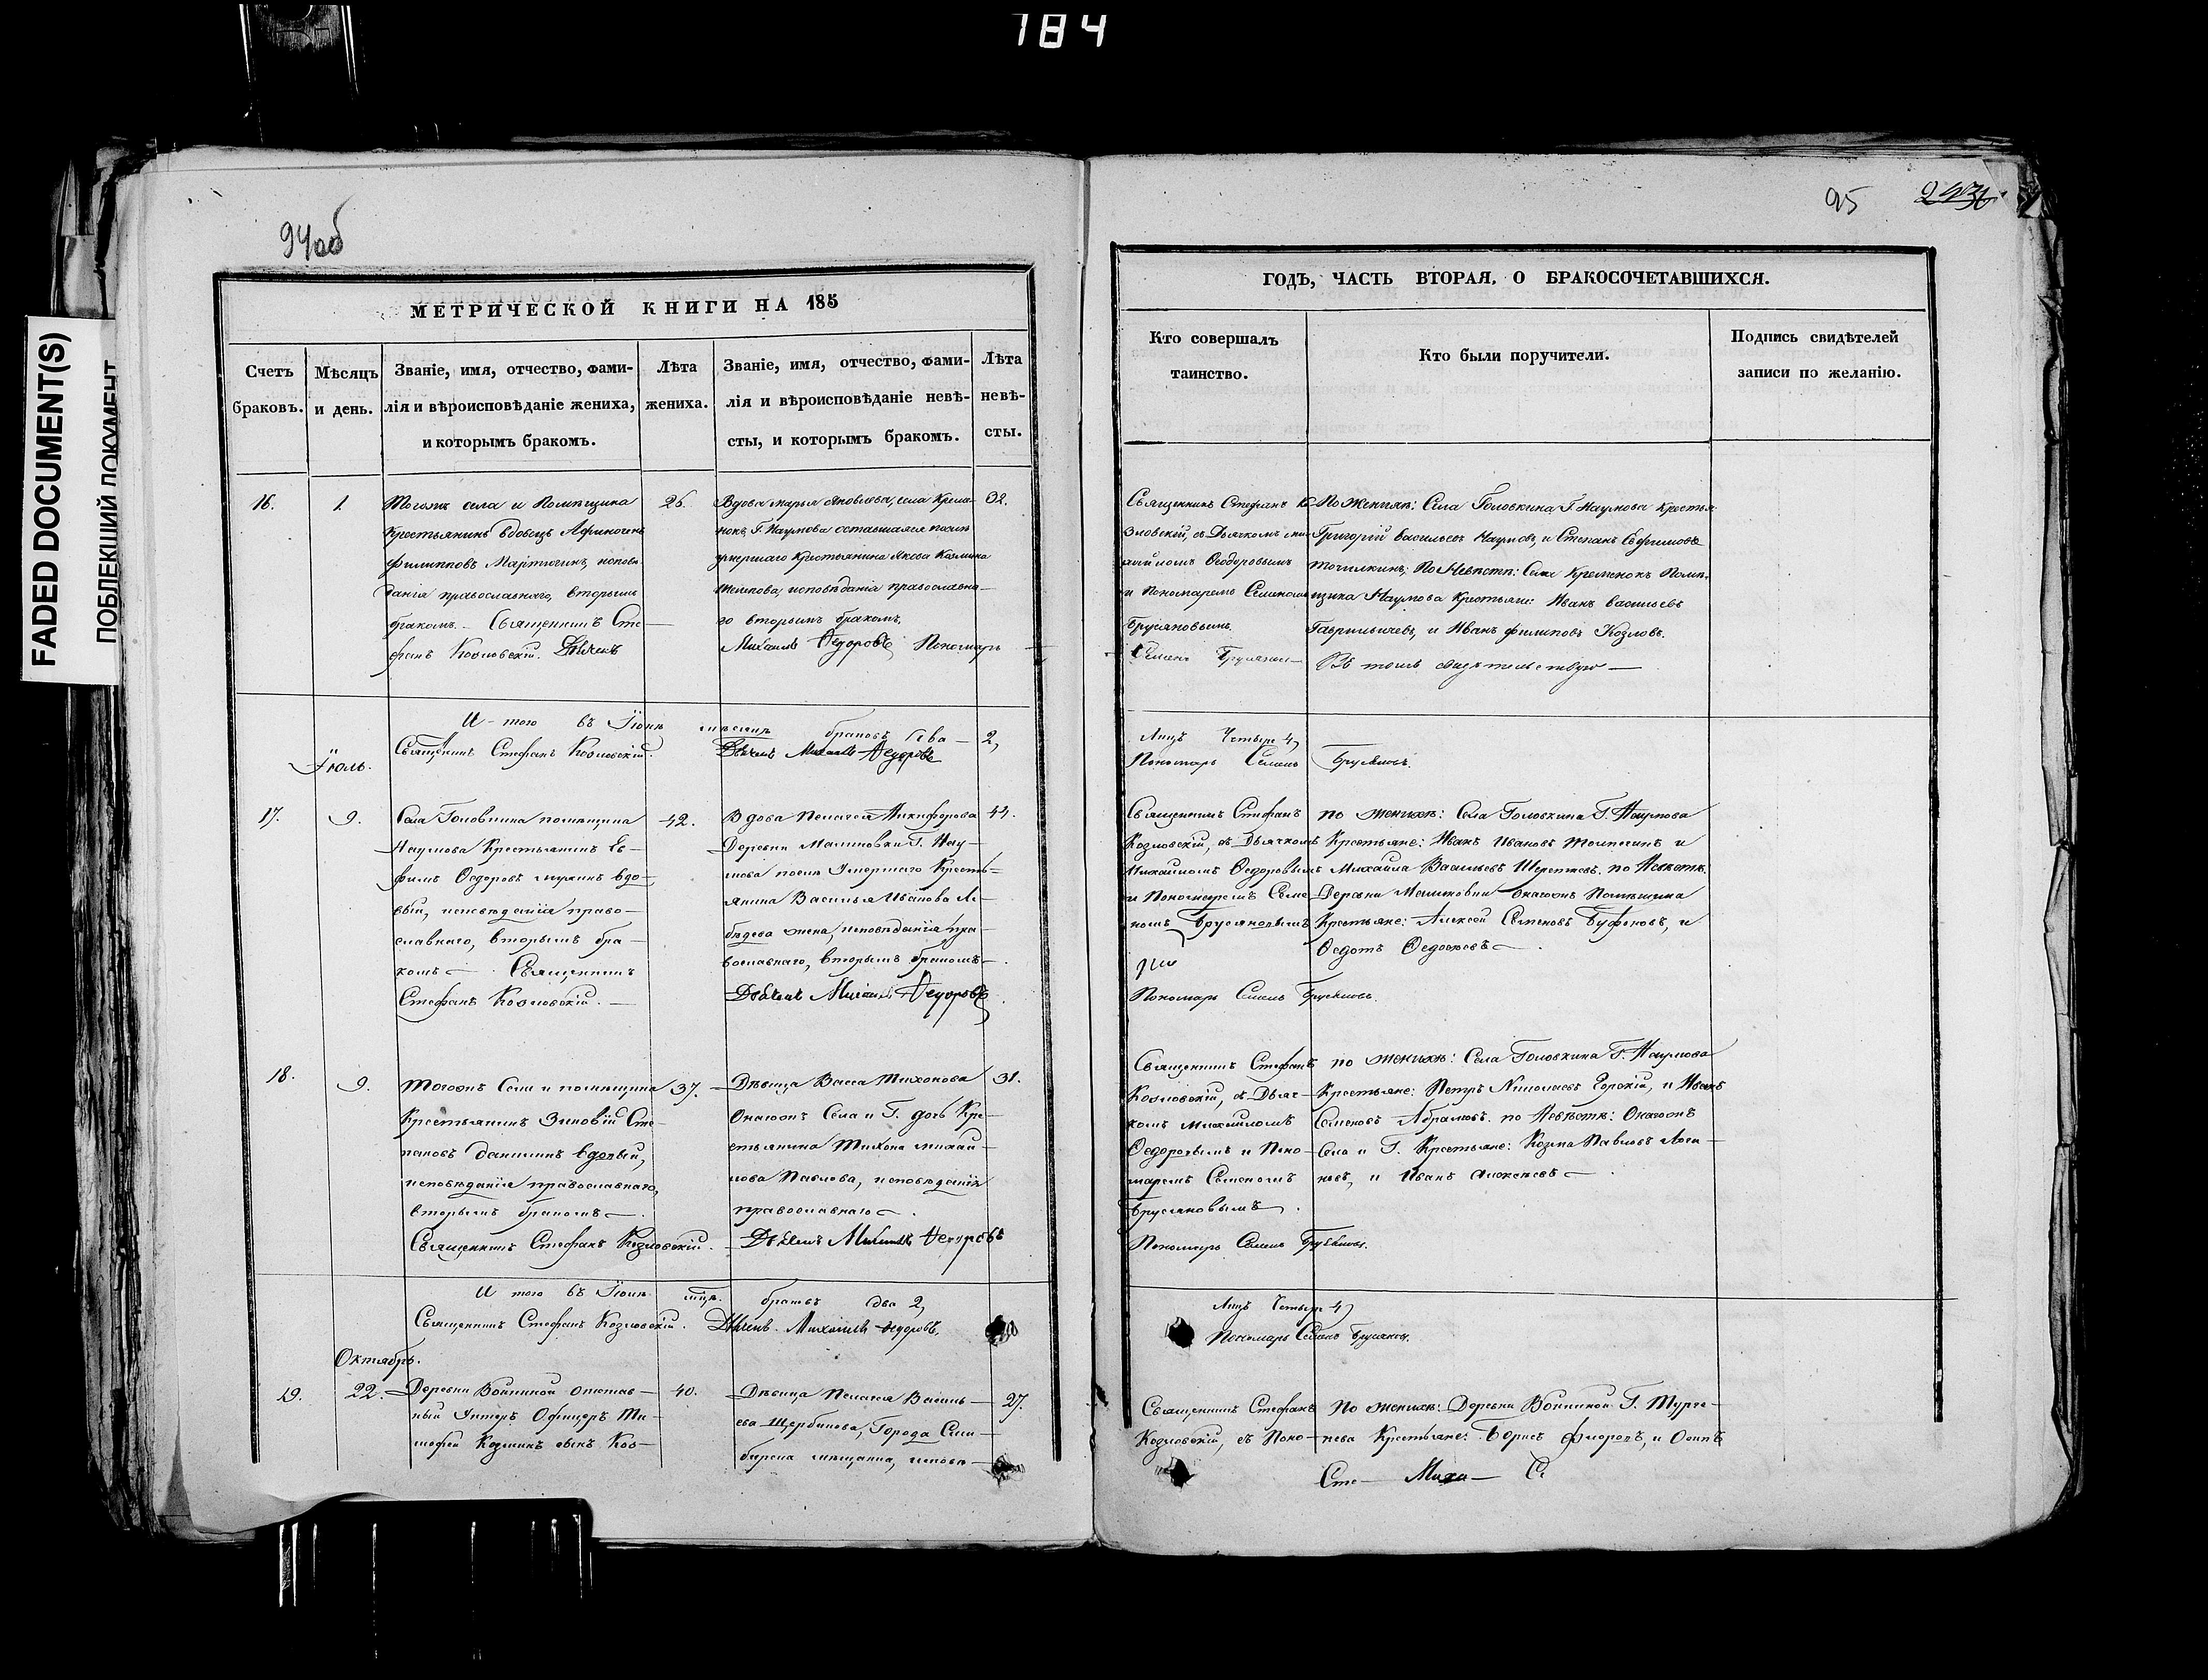 184
FADED DOCUMENT(S)
ПОБЛЕКШИЙ ДОКУМЕНТ
94об
МЕТРИЧЕСКОЙ КНИГИ НА 185
Счетъ браковъ.
Мѣсяцъ и день.
Званіе, имя, отчество, фами-
лія и вѣроисповѣданіе жениха,
и которымъ бракомъ.
Лѣта
жениха.
Званіе, имя, отчество, фами-
лія и вѣроисповѣданіе невѣ-
сты, и которымъ бракомъ.
Лѣта
невѣ-
сты.
16.
1.
Тогожъ села и Помѣщика
Крестьянинъ вдовецъ
Филипповъ исповѣ-
данія православнаго, вторымъ
бракомъ. Священникъ Сте-
фанъ Козловскій. Дьячекъ
Вдова Марья Яковлева, села Креме-
нокъ Г. Наумова оставшаяся послѣ
умершаго Крестьянина Якова
исповѣданія православна-
го вторымъ бракомъ.
Михаилъ Ѳедоровъ Пономарь
32.
И того въ мѣсяцѣ браковъ два 2,
Священникъ Стефанъ Козловскій. Дьячекъ Михаилъ Ѳедоровъ
Іюль.
17.
9.
Села Головкина помѣщика
Наумова Крестьянинъ Еѳ-
имъ Ѳедоровъ вдо-
вый, исповѣданія право-
славнаго, вторымъ бра-
комъ Священникъ
Стефанъ Козловскій.
42.
Вдова Пелагея Никифорова
Деревни Малиновки Г. Нау-
мова послѣ Умершаго Кресть-
янина Василья Иванова Ле-
бедева жена, исповѣданія пра-
вославнаго, вторымъ бракомъ
Дьячекъ Михаилъ Ѳедоровъ
44.
18.
9.
Тогожъ Села и помѣщика
Крестьянинъ Зиновій Сте-
пановъ Данилинъ вдовый,
исповѣданія православнаго,
вторымъ бракомъ
Священникъ Стефанъ Козловскій.
37.
Дѣвица Васса Тихонова
Онагожъ Села и Г. дочь Кре-
стьянина Тихона Михай-
лова Павлова, исповѣданія
православнаго
Дьячекъ Михаилъ Ѳедоровъ
31.
И того въ браковъ два 2,
Священникъ Стефанъ Козловскій. Дьячекъ Михаилъ Ѳедоровъ.
Октябрь.
19.
22.
Деревни отстав-
ный Унтеръ Офицеръ Ти-
моѳей Козминъ сынъ Коз-
40.
Дѣвица Пелагея Василь-
ева Щербакова, Города Сим-
бирска мѣщанка, исповѣ-
27.
95
ГОДЪ, ЧАСТЬ ВТОРАЯ, О БРАКОСОЧЕТАВШИХСЯ.
Кто совершалъ
таинство.
Кто были поручители.
Подпись свидѣтелей
записи по желанію.
Священникъ Стефанъ Ко-
зловскій, съ Дьячкомъ Ми-
хайломъ Ѳеодоровымъ
и Пономаремъ Семеномъ
Брусяновымъ.
Семенъ Брусянов
По Женихѣ: Села Головкина Г. Наумова крестья
Григорій Васильевъ Наумовъ, и Степанъ Ефимовъ
Точилкинъ; По Невѣстѣ: Села Кременокъ Помѣ-
щика Наумова Крестьяне: Иванъ Васильевъ
Гавриловичевъ, и Иванъ Филиповъ Козловъ.
Въ томъ свидѣтельствую
Лицъ Четыре 4,
Пономарь Семенъ Брусяновъ.
Священникъ Стефанъ
Козловскій, съ Дьячкомъ
Михайломъ Ѳедоровымъ
и Пономаремъ Семе-
номъ Брусяновымъ
Пономарь Семенъ Брусяновъ.
по женихѣ: Села Головкина Г. Наумова
Крестьяне: Иванъ Ивановъ и
Михайла Васильевъ по Невѣстѣ.
Деревни Малиновки онагожъ Помѣщика
Крестьяне: Алексѣй Семеновъ и
Ѳедотъ Ѳедосѣевъ
Священникъ Стефанъ
Козловскій, съ Дьяч-
комъ Михайломъ
Ѳедоровымъ и Поно-
маремъ Семеномъ
Брусяновымъ.
Пономарь Семенъ Брусяновъ.
по женихѣ: Села Головкина Г. Наумова
Крестьяне: Петръ Николаевъ Горскій, и Иванъ
Семеновъ Абрамовъ. по Невѣстѣ: Онагожъ
Села и Г. Крестьяне: Козма Павловъ Логи-
новъ, и Иванъ Алексѣевъ
Лицъ Четыре 4,
Пономарь Семенъ Брусяновъ.
Священникъ Стефанъ
Козловскій, съ Поно-
По женихѣ: Деревни Г. Турге-
нева Крестьяне: Борисъ и Осипъ
Сте- Миха- С